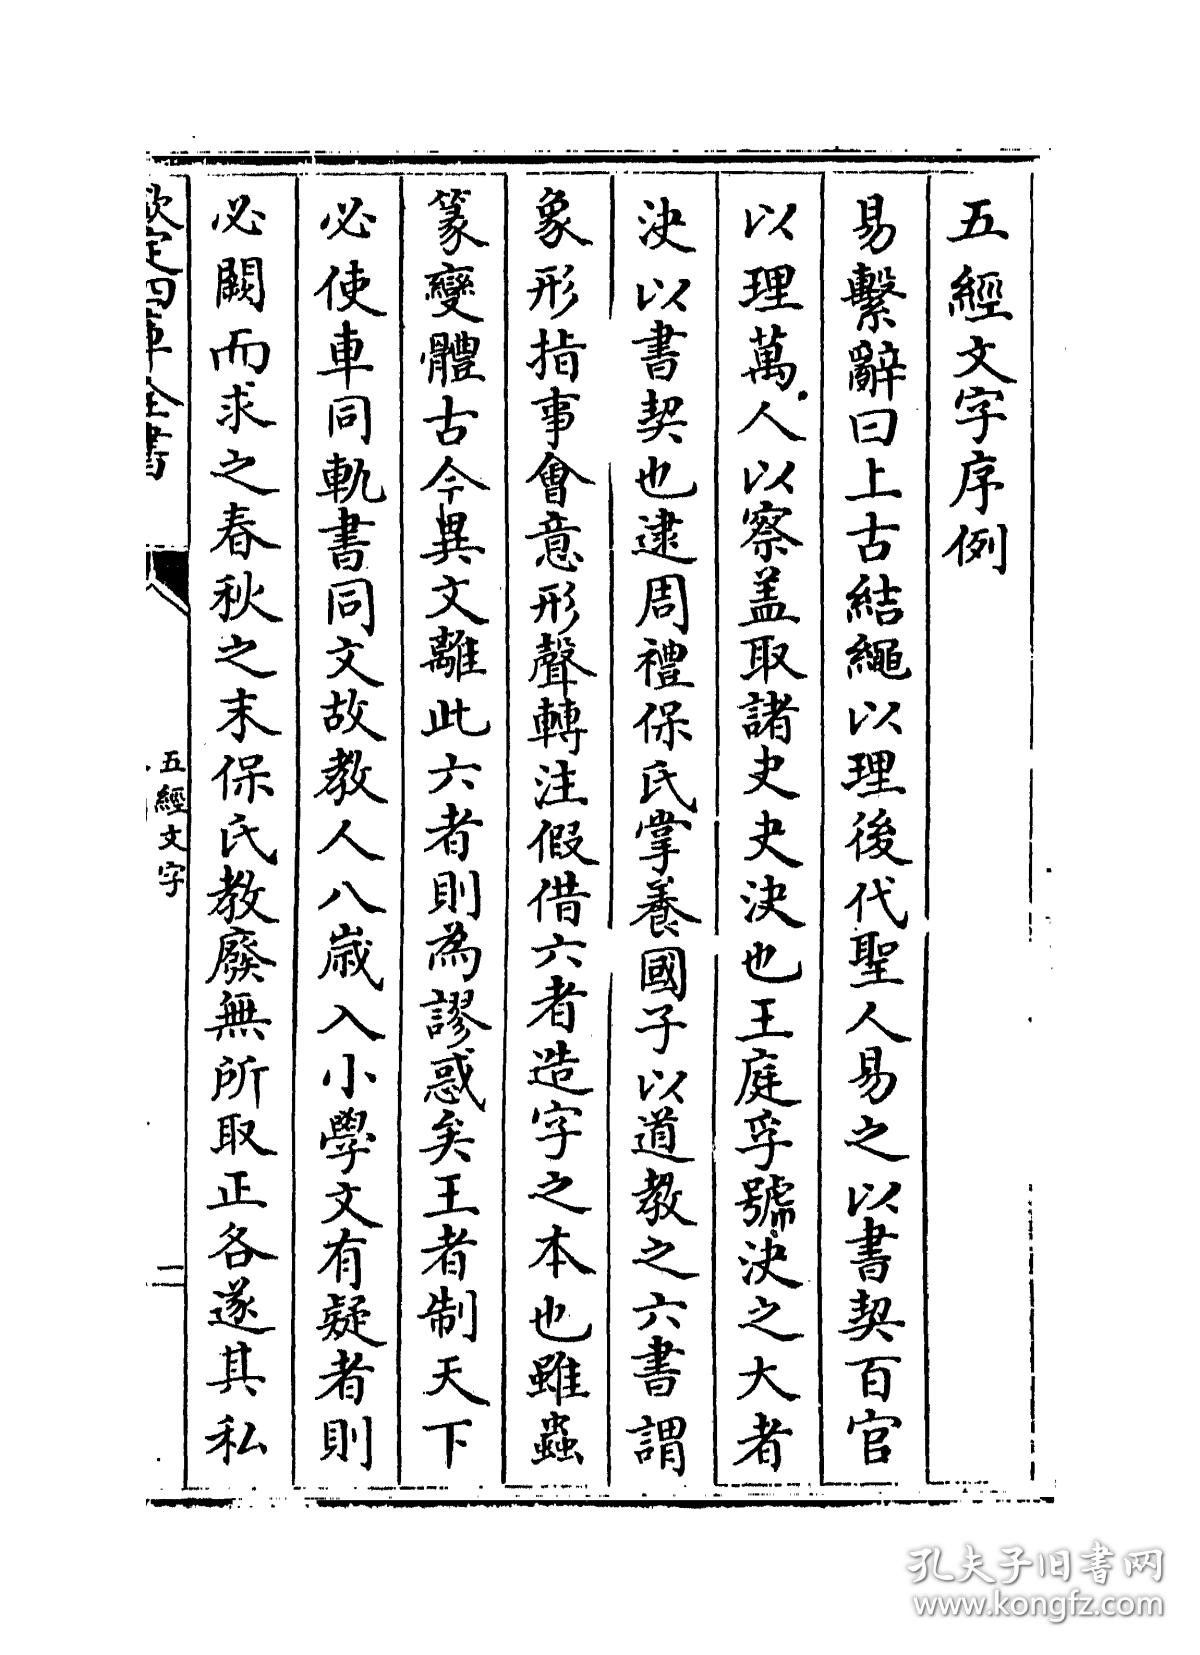 五經文字序例
易繫辭曰上古結繩以理後代聖人易之以書契百官
以理萬人以察盖取諸史史決也王庭孚號決之大者
決以書契也逮周禮保氏掌養國子以道教之六書謂
象形指事會意形聲轉注假借六者造字之本也雖蟲
篆變體古今異文離此六者則為謬惑矣王者制天下
必使車同軌書同文故教人八歲入小學文有疑者則
必闕而求之春秋之末保氏教廢無所取正各遂其私
欽定四庫全書
五經文字
二
孔夫子旧書网
www.kongfz.com